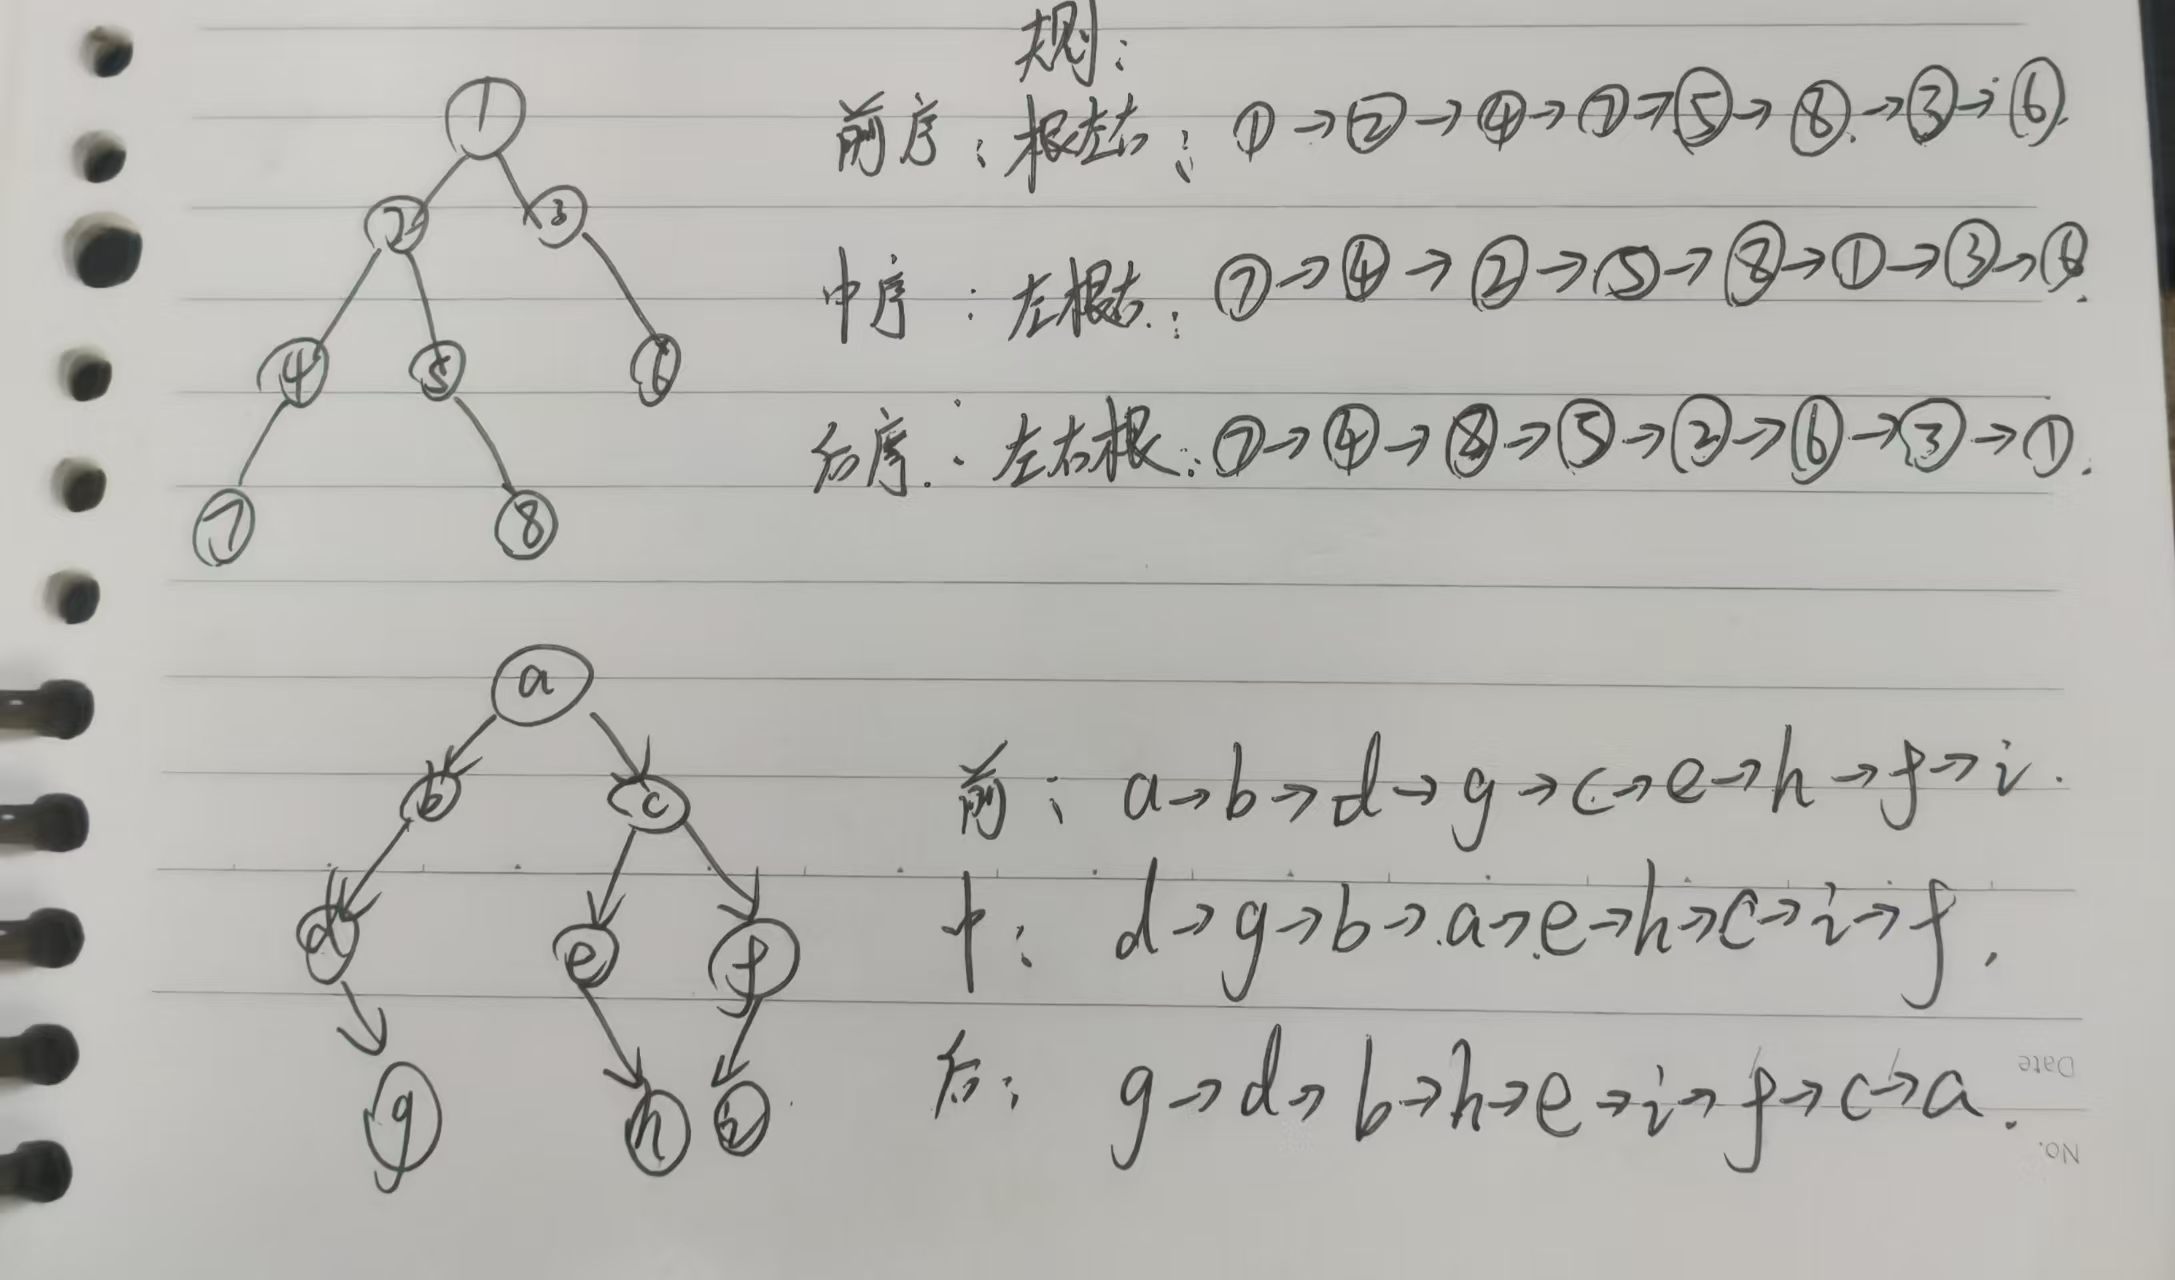 规则:
前序: 根左右: ①→②→④→⑦→⑤→⑧→③→⑥.
中序: 左根右: ⑦→④→②→⑤→⑧→①→③→⑥.
后序: 左右根: ⑦→④→⑧→⑤→②→⑥→③→①.
①
② ③
④ ⑤ ⑥
⑦ ⑧
前: a→b→d→g→c→e→h→f→i.
中: d→g→b→a→e→h→c→i→f.
后: g→d→b→h→e→i→f→c→a.
a
b c
d e f
g h i
Date
No.